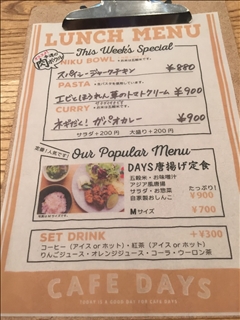 LUNCH MENU
This Week's Special
NIKU BOWL
スパイシージャークチキン ¥880
PASTA
エビとほうれん草のトマトクリーム ¥900
CURRY
ネギだく!ガパオカレー ¥900
サラダ+200円 大盛り+200円
定番!人気です!
Our Popular Menu
DAYS唐揚げ定食
五穀米・お味噌汁
アジア風唐揚
サラダ・お惣菜
自家製おしんこ
たっぷり!
¥900
Mサイズ ¥700
SET DRINK +¥300
コーヒー(アイス or ホット)・紅茶(アイス or ホット)
りんごジュース・オレンジジュース・コーラ・ウーロン茶
CAFE DAYS
TODAY IS A GOOD DAY FOR CAFE DAYS